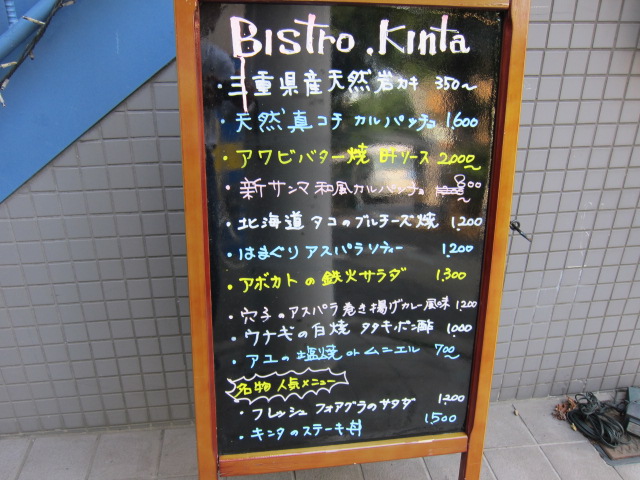 Bistro.Kinta
・三重県産天然岩カキ 350〜
・天然真コチ カルパッチョ 1.600
・アワビバター焼 肝ソース 2000〜
・新サンマ 和風カルパッチョ 800〜
・北海道タコのブルーチーズ焼 1.200
・はまぐりアスパラソティー 1.200
・アボカトの鉄火サラダ 1.300
・穴子のアスパラ巻き揚げカレー風味 1.200
・ウナギの白焼 タタキポン酢 1.000
・アユの塩焼 or ムニエル 700
名物 人気メニュー
・フレッシュ フォアグラのサラダ 1.200
・キンタのステーキ丼 1.500